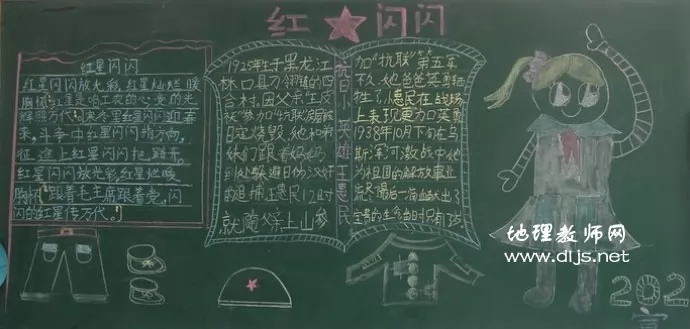 红★闪闪
红星闪闪
红星闪闪放光彩,红星灿灿暖
胸怀,红星是咱工农的心,党的光
辉照万代。寒冬里红星闪闪迎春
来,斗争中红星闪闪指方向,
征途上红星闪闪把路开。
红星闪闪放光彩,红星灿灿暖
胸怀,跟着毛主席跟着党,闪
闪的红星传万代。
1925年生于黑龙江
林口县刁翎镇的四
合村,因父亲王皮
袄参加抗联,房屋被
日寇烧毁,她和弟
妹们跟着妈妈
到处躲避日伪汉奸
的追捕,王惠民12时
就随父亲上山参
抗日小英雄王惠民
加“抗联”第五军
不久,她爸爸英勇牺
牲了,惠民在战场
上表现更加英勇
1938年10月下旬在乌
斯浑河激战中,她
为祖国的解放事业
流尽最后一滴血,献出了
宝贵的生命,当时只有13岁
地理教师网
www.dljs.net
202